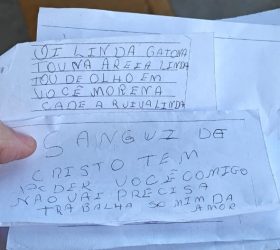 OI LINDA GATONA
TOU NA AREIA LINDA
TOU DE OLHO EM
VOCÊ MORENA
CADE A RUIVA LINDA
SANGUI DE
CRISTO TEM
PODER VOCÊ COMIGO
NÃO VAI PRECISA
TRABALHA SO MIM DA
AMOR